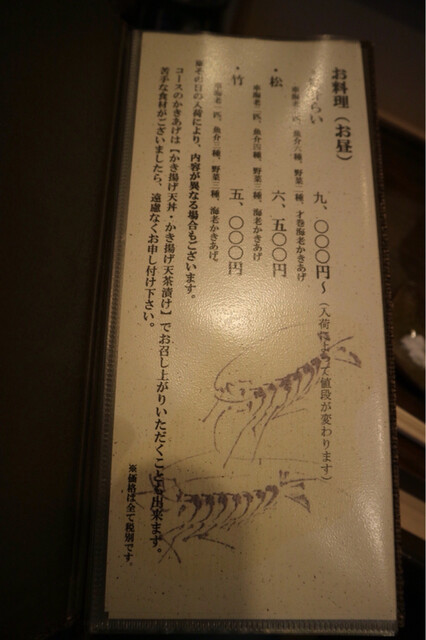 お料理（お昼）
らい 九、〇〇〇円～（入荷によって値段が変わります）
車海老二匹、魚介六種、野菜二種、才巻海老かきあげ
・松 六、五〇〇円
車海老二匹、魚介四種、野菜三種、海老かきあげ
・竹 五、〇〇〇円
車海老二匹、魚介三種、野菜三種、海老かきあげ。
※その日の入荷により、内容が異なる場合もございます。
コースのかきあげは【かき揚げ天丼・かき揚げ天茶漬け】でお召し上がりいただくことも出来ます。
苦手な食材がございましたら、遠慮なくお申し付け下さい。
※価格は全て税別です。